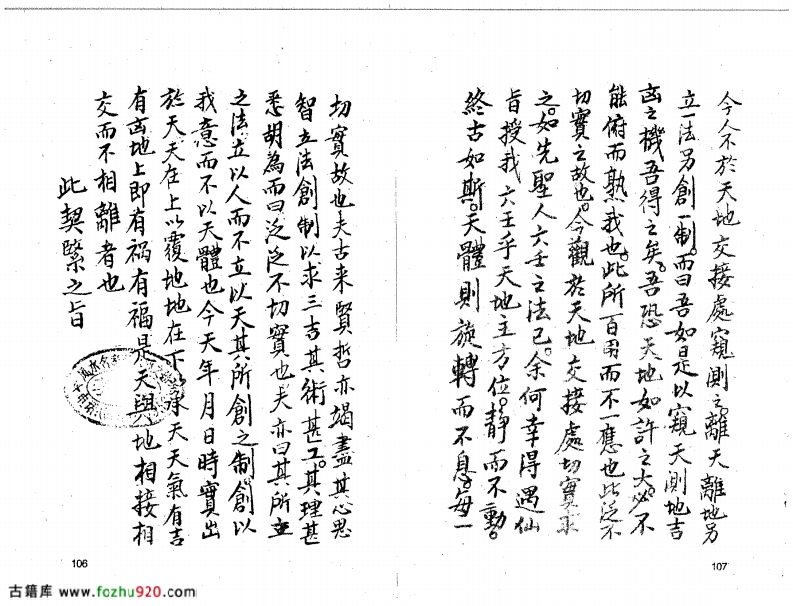 切實故也夫古来賢哲亦竭盡其心思
智立法創制以求三吉其術甚工。其理甚
悉胡為而曰泛泛不切實也夫亦曰其所立
之法立以人而不立以天其所創之制。創以
我意而不以天體也今天年月日時實出
於天天在上以覆地地在下承天天氣有吉
有凶地上即有禍有福是天與地相接相
交而不相離者也
此契緊之旨
106
今人不於天地交接處窺測之。離天離地另
立一法另創一制。而曰吾如是以窺天測地吉
凶之機吾得之矣。吾恐天地如許之大。必不
能俯而熟我也。此所百用而不一應也此泛不
切實之故也。今觀於天地交接處切實求
之。如先聖人六壬之法已。余何幸得遇仙
旨授我六壬乎天地王方位。靜而不動。
終古如斯。天體則旋轉而不息。每一
107
古籍库 www.fozhu920.com